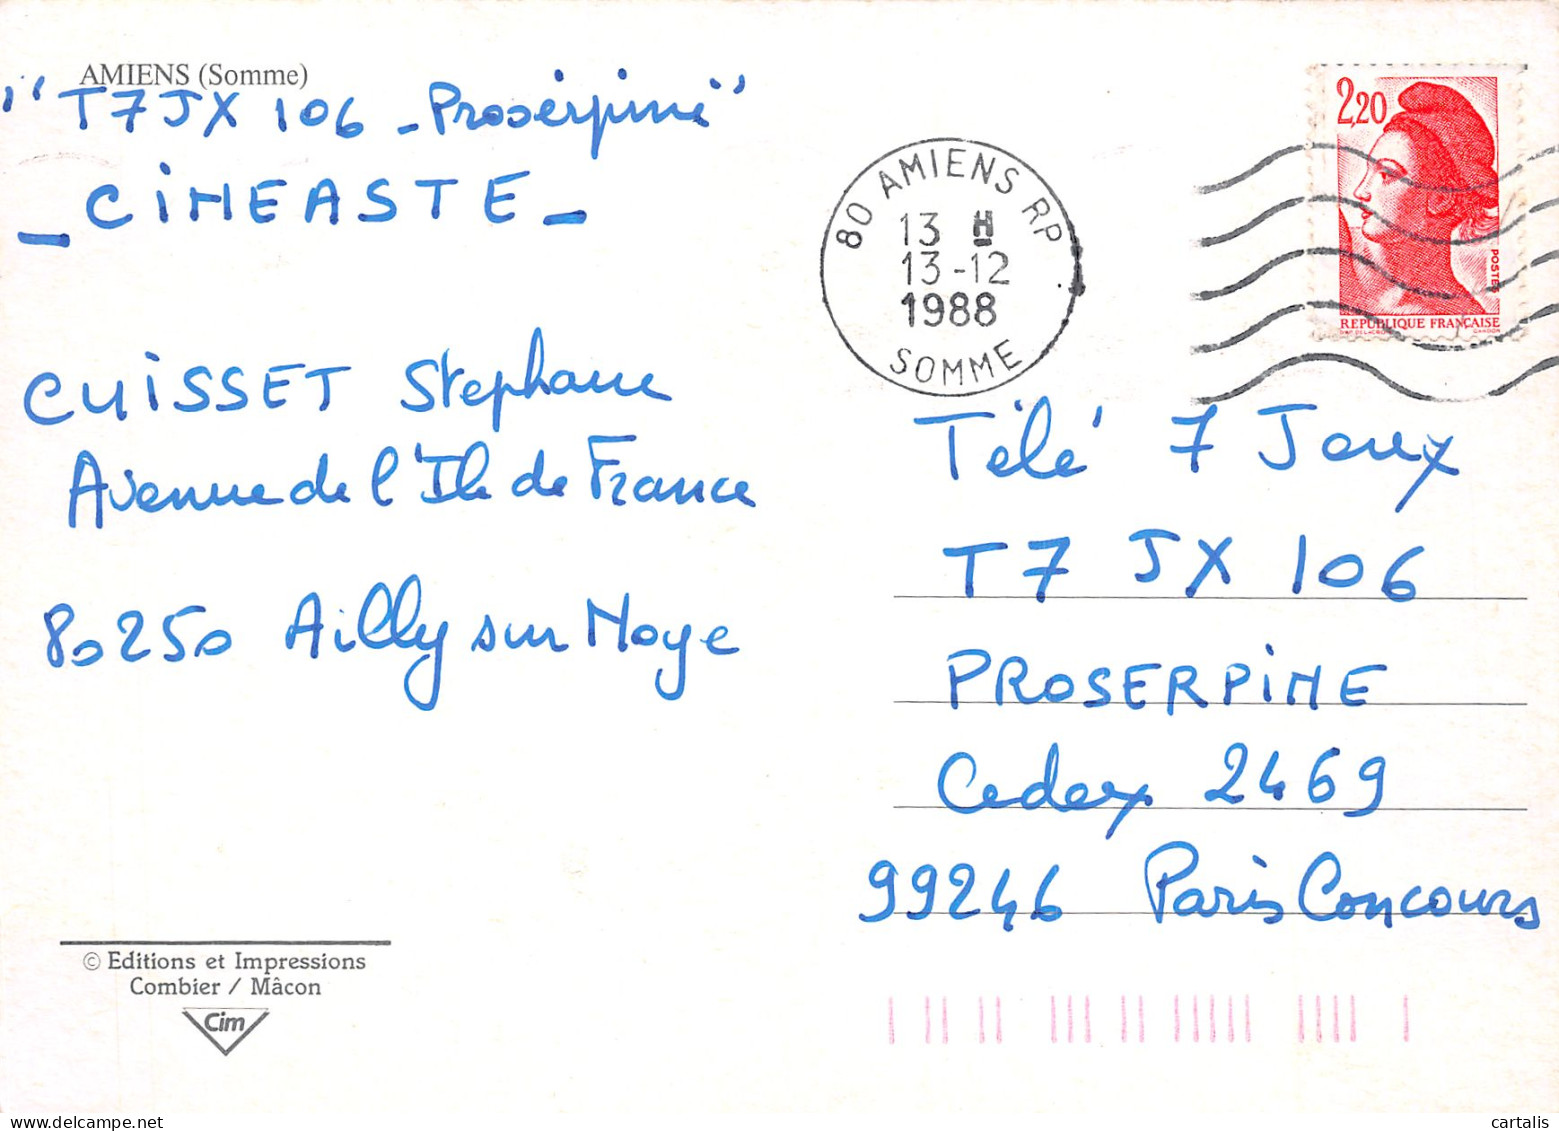 AMIENS (Somme)
"T7JX 106 - Prosérpine"
- CINEASTE -
CUISSET Stephane
Avenue de l'Ile de France
80250 Ailly sur Noye
80 AMIENS RP
13 H
13-12
1988
SOMME
2,20
POSTES
REPUBLIQUE FRANÇAISE
GANDON
Télé 7 Jeux
T7 JX 106
PROSERPINE
Cedex 2469
99246 Paris Concours
© Editions et Impressions
Combier / Mâcon
Cim
cartalis
delcampe.net